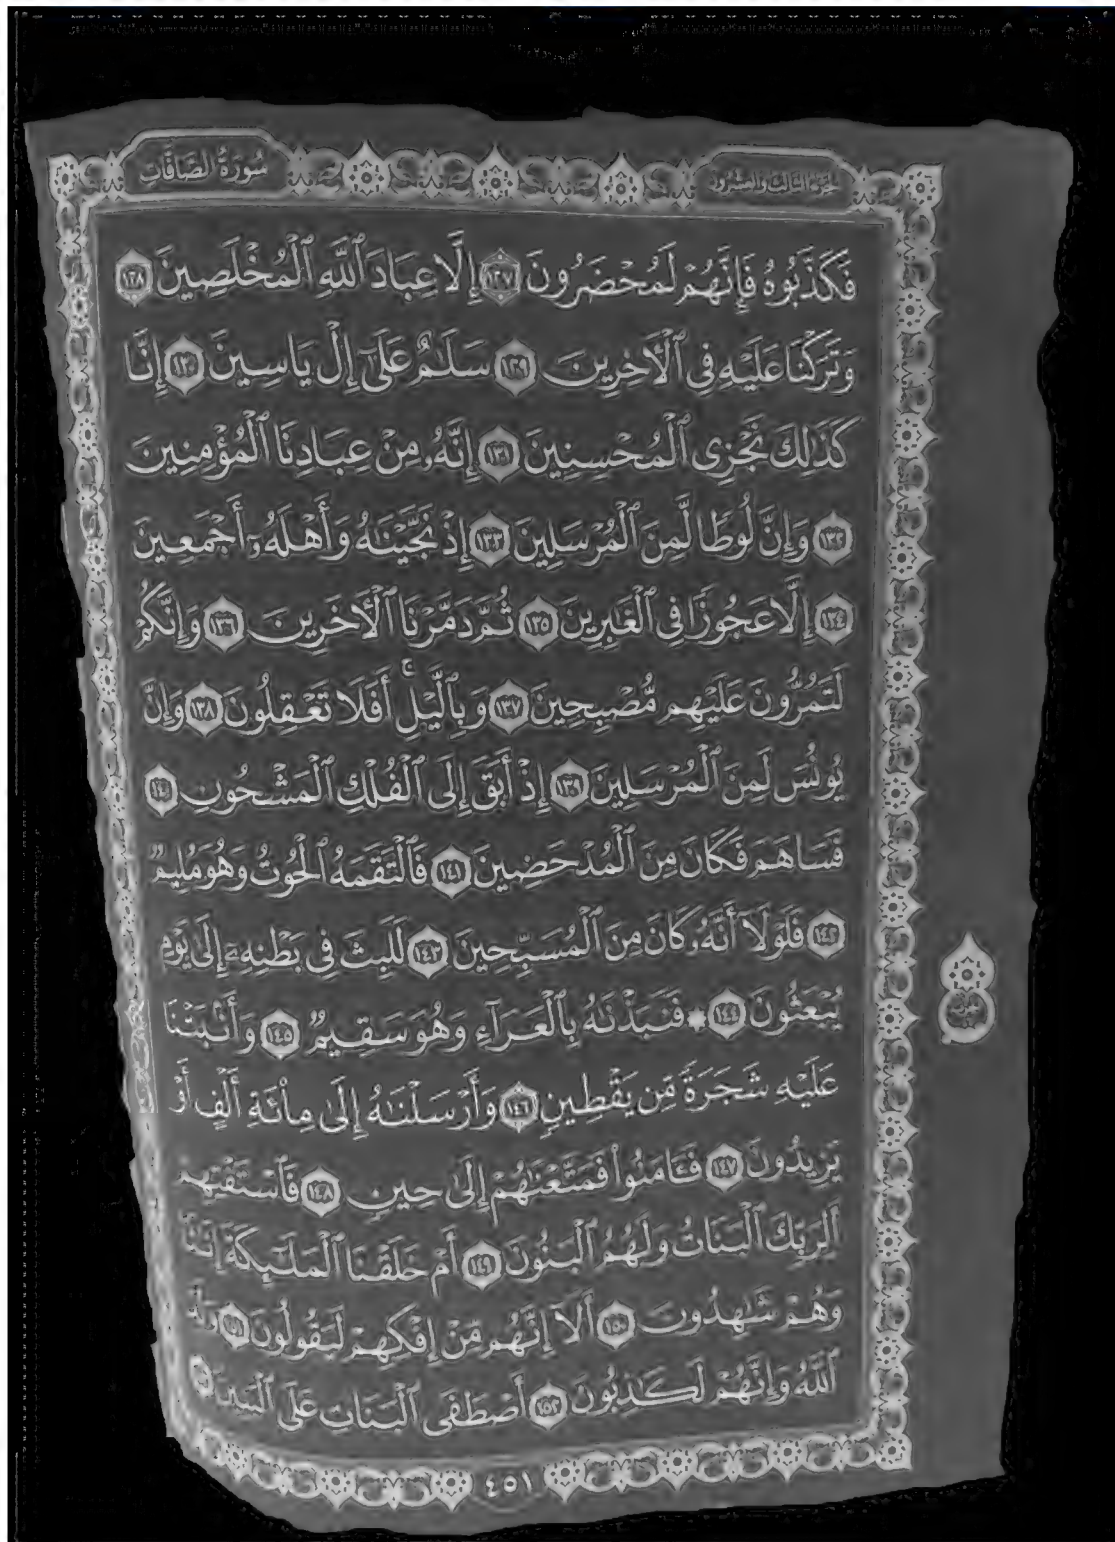 سُورَةُ الصَّافَّاتِ
الجزء الثالث والعشرون
فَكَذَّبُوهُ فَإِنَّهُمْ لَمُحْضَرُونَ ١٢٧ إِلَّا عِبَادَ ٱللَّهِ ٱلْمُخْلَصِينَ ١٢٨
وَتَرَكْنَا عَلَيْهِ فِي ٱلْآخِرِينَ ١٢٩ سَلَٰمٌ عَلَىٰٓ إِلْ يَاسِينَ ١٣٠ إِنَّا
كَذَٰلِكَ نَجْزِي ٱلْمُحْسِنِينَ ١٣١ إِنَّهُۥ مِنْ عِبَادِنَا ٱلْمُؤْمِنِينَ
١٣٢ وَإِنَّ لُوطًا لَّمِنَ ٱلْمُرْسَلِينَ ١٣٣ إِذْ نَجَّيْنَٰهُ وَأَهْلَهُۥٓ أَجْمَعِينَ
١٣٤ إِلَّا عَجُوزًا فِي ٱلْغَٰبِرِينَ ١٣٥ ثُمَّ دَمَّرْنَا ٱلْآخَرِينَ ١٣٦ وَإِنَّكُمْ
لَتَمُرُّونَ عَلَيْهِم مُّصْبِحِينَ ١٣٧ وَبِٱلَّيْلِ أَفَلَا تَعْقِلُونَ ١٣٨ وَإِنَّ
يُونُسَ لَمِنَ ٱلْمُرْسَلِينَ ١٣٩ إِذْ أَبَقَ إِلَى ٱلْفُلْكِ ٱلْمَشْحُونِ ١٤٠
فَسَاهَمَ فَكَانَ مِنَ ٱلْمُدْحَضِينَ ١٤١ فَٱلْتَقَمَهُ ٱلْحُوتُ وَهُوَ مُلِيمٌ
١٤٢ فَلَوْلَآ أَنَّهُۥ كَانَ مِنَ ٱلْمُسَبِّحِينَ ١٤٣ لَلَبِثَ فِي بَطْنِهِۦٓ إِلَىٰ يَوْمِ
يُبْعَثُونَ ١٤٤ ۞ فَنَبَذْنَٰهُ بِٱلْعَرَآءِ وَهُوَ سَقِيمٌ ١٤٥ وَأَنۢبَتْنَا
عَلَيْهِ شَجَرَةً مِّن يَقْطِينٍ ١٤٦ وَأَرْسَلْنَٰهُ إِلَىٰ مِا۟ئَةِ أَلْفٍ أَوْ
يَزِيدُونَ ١٤٧ فَـَٔامَنُوا۟ فَمَتَّعْنَٰهُمْ إِلَىٰ حِينٍ ١٤٨ فَٱسْتَفْتِهِمْ
أَلِرَبِّكَ ٱلْبَنَاتُ وَلَهُمُ ٱلْبَنُونَ ١٤٩ أَمْ خَلَقْنَا ٱلْمَلَٰٓئِكَةَ إِنَٰثًا
وَهُمْ شَٰهِدُونَ ١٥٠ أَلَآ إِنَّهُم مِّنْ إِفْكِهِمْ لَيَقُولُونَ ١٥١ وَلَدَ
ٱللَّهُ وَإِنَّهُمْ لَكَٰذِبُونَ ١٥٢ أَصْطَفَى ٱلْبَنَاتِ عَلَى ٱلْبَنِينَ
٤٥١